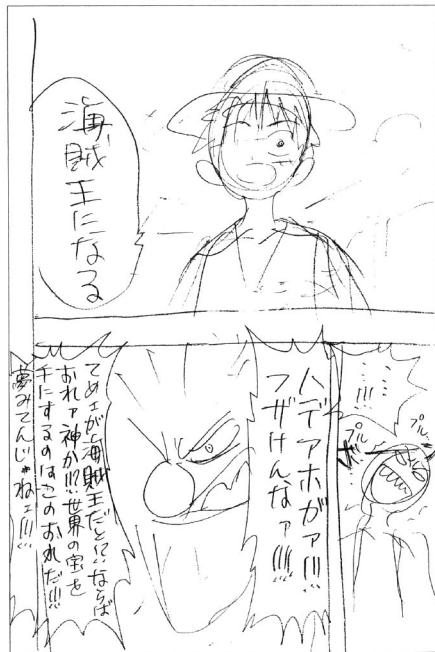 海賊
王になる
…!!!
プル
プル
ハデアホがァ!!!
フザけんなァ!!!!
てめェが海賊王だと!?ならば
おれァ神か!!!世界の宝を
手にするのはこのおれだ!!!
夢みてんじゃねェ!!!!